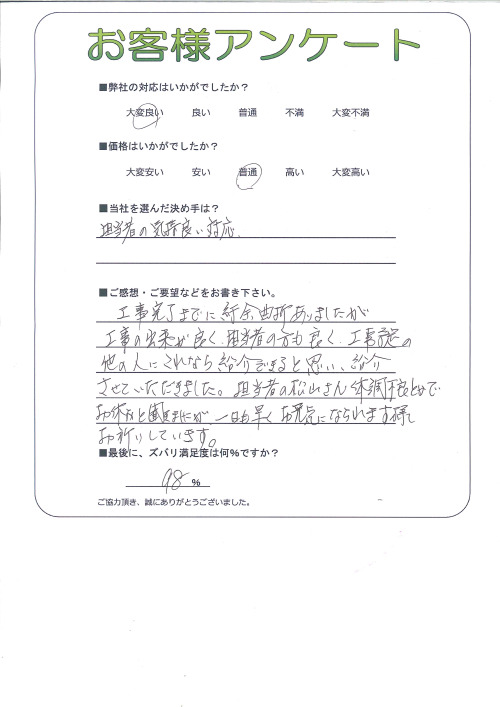 お客様アンケート
■弊社の対応はいかがでしたか？
大変良い 良い 普通 不満 大変不満
■価格はいかがでしたか？
大変安い 安い 普通 高い 大変高い
■当社を選んだ決め手は？
担当者の気持良い対応.
■ご感想・ご要望などをお書き下さい。
工事完了までに紆余曲折ありましたが
工事の出来が良く、担当者の方も良く、工事予定の
他の人にこれなら紹介できると思い、紹介
させていただきました。担当者の松山さん体調不良とかで
お休みと聞きましたが、一日も早くお元気になられます様
お祈りしています。
■最後に、ズバリ満足度は何％ですか？
98 %
ご協力頂き、誠にありがとうございました。